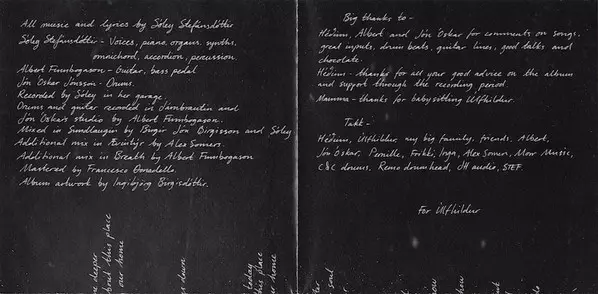 All music and lyrics by Sóley Stefánsdóttir
Sóley Stefánsdóttir - Voices, piano, organs, synths,
omnichord, accordion, percussion.
Albert Finnbogason - Guitar, bass pedal
Jón Óskar Jónsson - Drums.
Recorded by Sóley in her garage.
Drums and guitar recorded in Jambrautin and
Jón Óskar's studio by Albert Finnbogason.
Mixed in Sundlaugin by Birgir Jón Birgisson and Sóley
Additional mix in Ævintýr by Alex Somers.
Additional mix in Breath by Albert Finnbogason
Mastered by Francesco Donadello.
Album artwork by Ingibjörg Birgisdóttir.
deeper
about this place
our home
down
today
this place
our home
Big thanks to -
Héðinn, Albert and Jón Óskar for comments on songs,
great inputs, drum beats, guitar lines, good talks and
chocolate.
Héðinn - thanks for all your good advice on the album
and support through the recording period.
Mamma - thanks for babysitting Úlfhildur.
Takk -
Héðinn, Úlfhildur, my big family, friends, Albert,
Jón Óskar, Pernille, Frikki, Inga, Alex Somers, Morr Music,
C&C drums, Remo drumhead, JH audio, STEF.
For Úlfhildur
soul